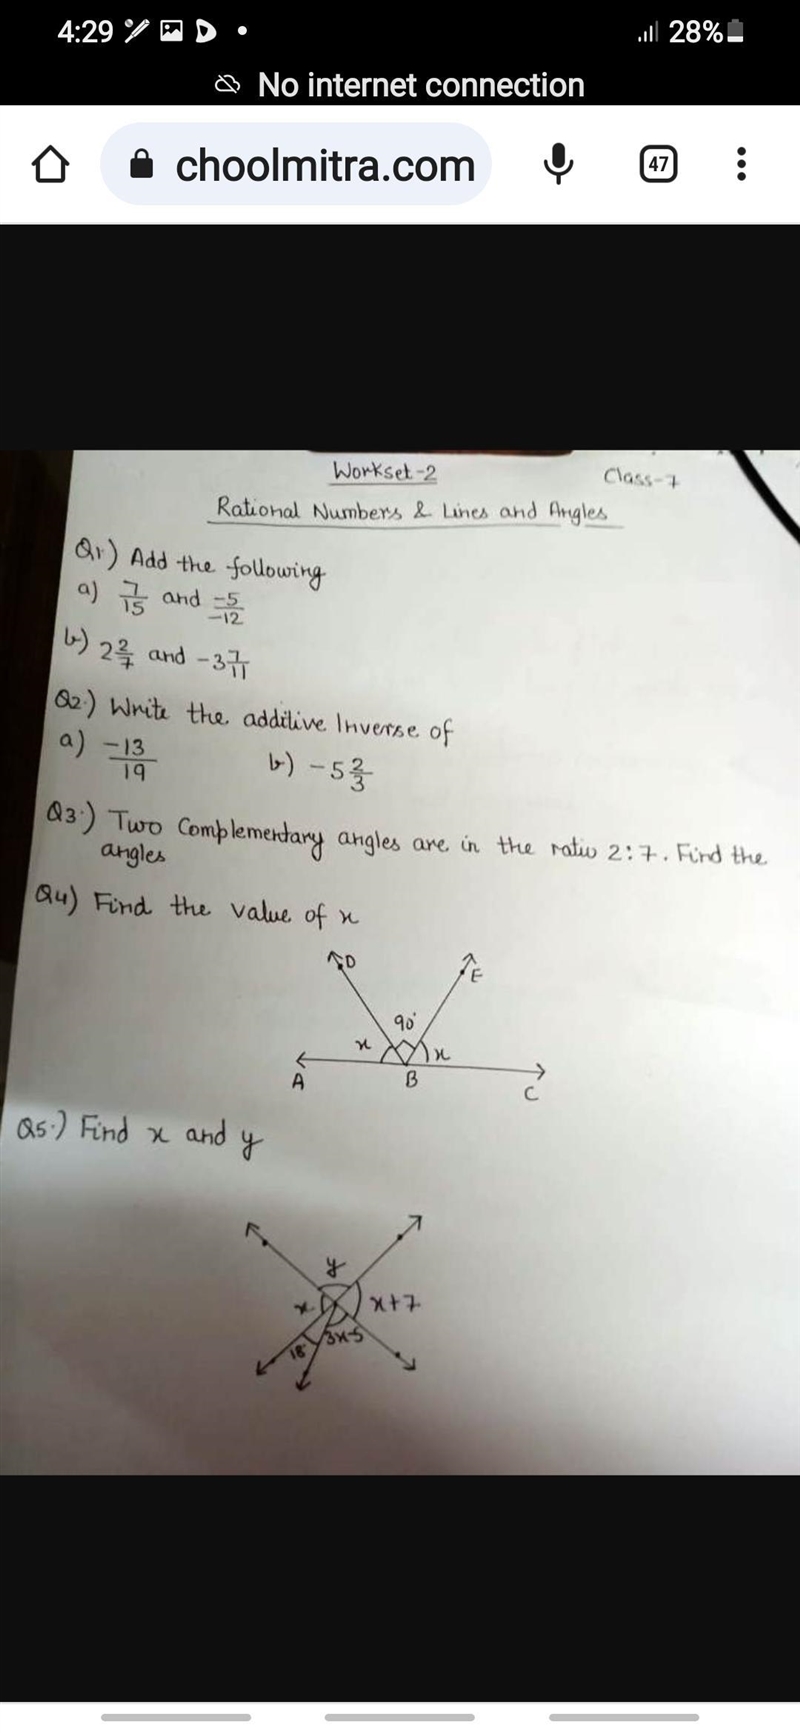 4:29
28%
No internet connection
choolmitra.com
47
Workset-2
Class-7
Rational Numbers & Lines and Angles
Q1) Add the following
a) 7/15 and -5/-12
b) 2 2/7 and -3 7/11
Q2.) Write the additive Inverse of
a) -13/19 b) -5 2/3
Q3.) Two Complementary angles are in the ratio 2:7. Find the
angles
Q4) Find the value of x
D
E
90°
x
x
A
B
C
Q5.) Find x and y
y
x
x+7
18°
3x-5